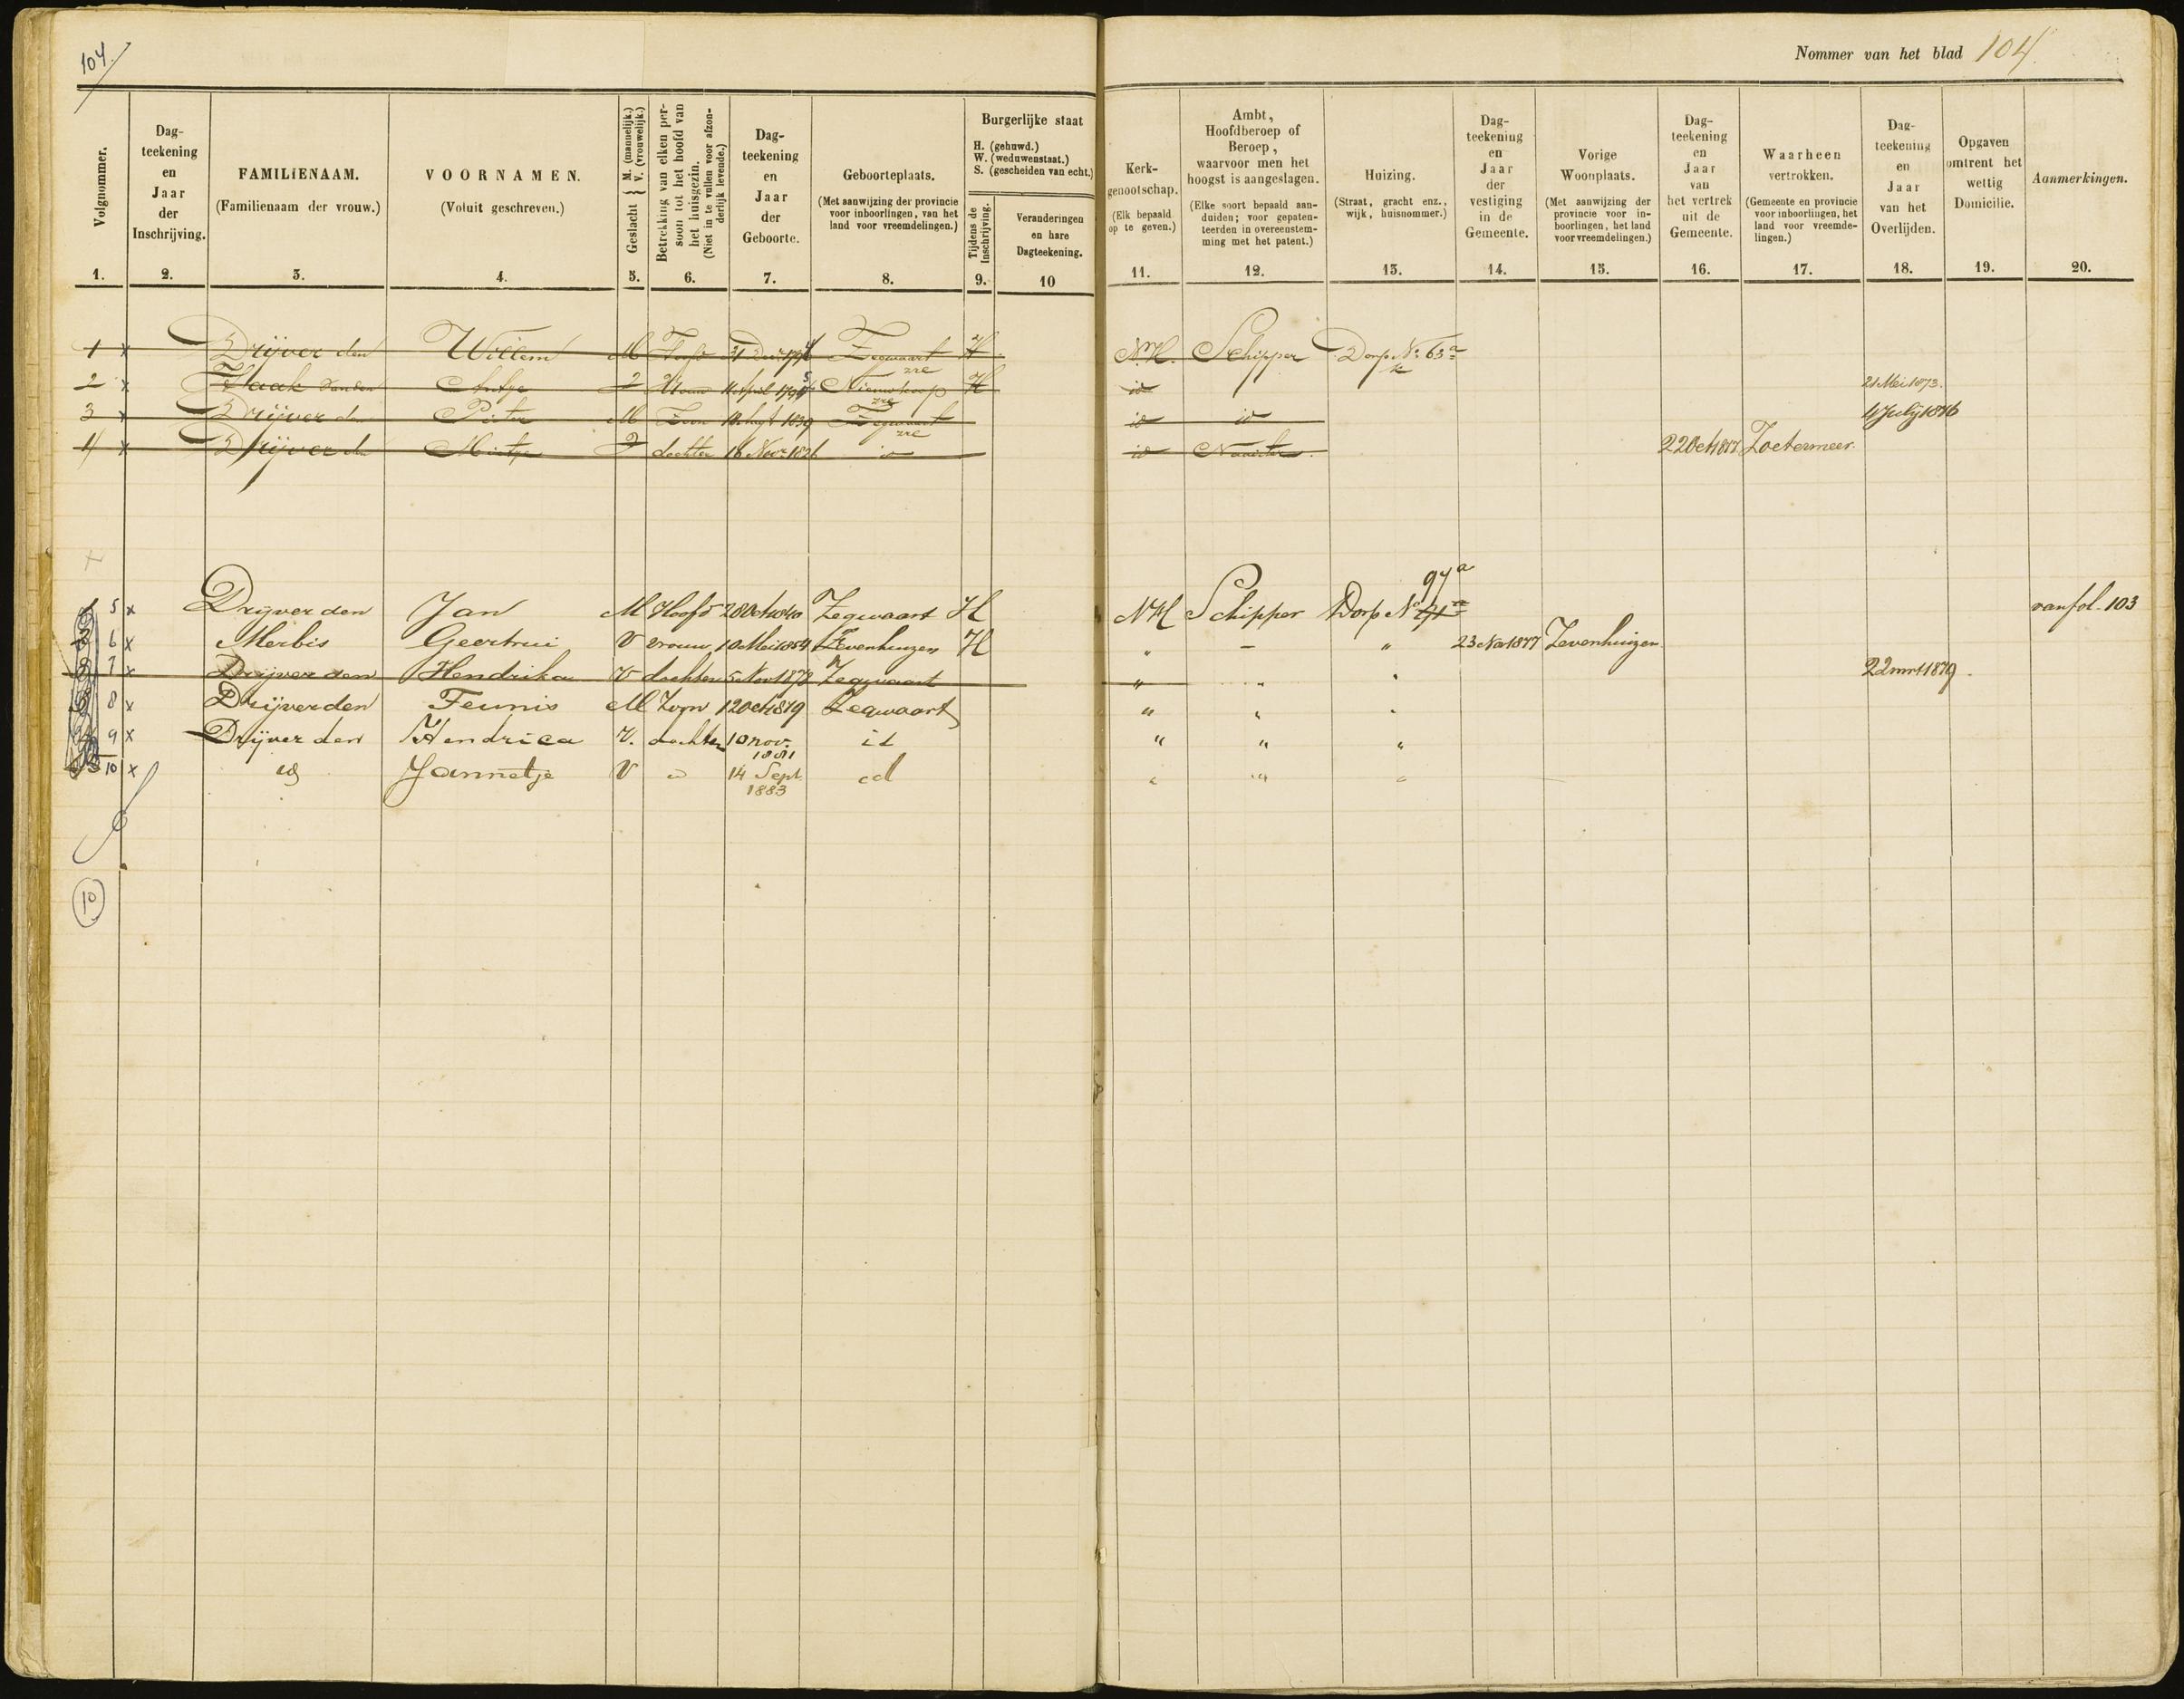 104.
Nommer van het blad 104.
Volgnommer.
Dag-
teekening
en
Jaar
der
Inschrijving.
FAMILIENAAM.
(Familienaam der vrouw.)
VOORNAMEN.
(Voluit geschreven.)
Geslacht { M. (mannelijk.) V. (vrouwelijk.)
Betrekking van elken per-
soon tot het hoofd van
het huisgezin.
(Niet in te vullen voor afzon-
derlijk levende.)
Dag-
teekening
en
Jaar
der
Geboorte.
Geboorteplaats.
(Met aanwijzing der provincie
voor inboorlingen, van het
land voor vreemdelingen.)
Burgerlijke staat
H. (gehuwd.)
W. (weduwenstaat.)
S. (gescheiden van echt.)
Tijdens de
Inschrijving.
Veranderingen
en hare
Dagteekening.
Kerk-
genootschap.
(Elk bepaald
op te geven.)
Ambt,
Hoofdberoep of
Beroep,
waarvoor men het
hoogst is aangeslagen.
(Elke soort bepaald aan-
duiden; voor gepaten-
teerden in overeenstem-
ming met het patent.)
Huizing.
(Straat, gracht enz.,
wijk, huisnommer.)
Dag-
teekening
en
Jaar
der
vestiging
in de
Gemeente.
Vorige
Woonplaats.
(Met aanwijzing der
provincie voor in-
boorlingen, het land
voor vreemdelingen.)
Dag-
teekening
en
Jaar
van
het vertrek
uit de
Gemeente.
Waarheen
vertrokken.
(Gemeente en provincie
voor inboorlingen, het
land voor vreemde-
lingen.)
Dag-
teekening
en
Jaar
van het
Overlijden.
Opgaven
omtrent het
wettig
Domicilie.
Aanmerkingen.
1. 2. 3. 4. 5. 6. 7. 8. 9. 10 11. 12. 13. 14. 15. 16. 17. 18. 19. 20.
1 x Drijver den Willem M Hoofd 31 Zegwaart H N.H. Schipper Dorp No 63a
2 x Haak van den Antje V Vrouw 11 April Nieuwkoop H id 21 Mei 1873.
3 x Drijver den Pieter M Zoon Zegwaart id id 4 July 1876
4 x Drijver den V dochter 16 Nov 1826 id id Naaister 22 Oct 1877 Zoetermeer.
5 x Drijver den Jan M Hoofd 28 Oct 1840 Zegwaart H NH Schipper Dorp No 97a van fol. 103
6 x Merbis Geertrui V vrouw 10 Mei 1854 Zevenhuizen H " – " 23 Nov 1877 Zevenhuizen
7 x Drijver den Hendrika V dochter 5 Nov 1878 Zegwaart " " " 22 mrt 1879.
8 x Drijver den Teunis M Zoon 12 Oct 1879 Zegwaart " " "
9 x Drijver den Hendrica V. dochter 10 nov. 1881 id " " "
10 x id Jannetje V id 14 Sept. 1883 id " " "
10